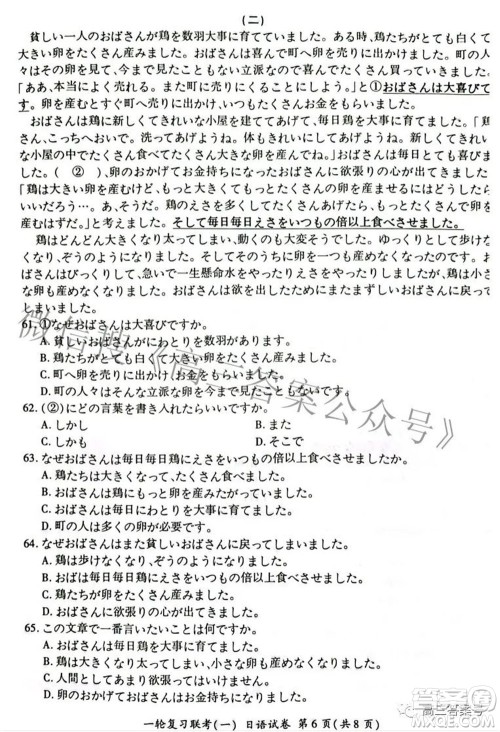 (二)
貧しい一人のおばさんが鶏を数羽大事に育てていました。ある時、鶏たちがとても白くて
大きい卵をたくさん産みました。おばさんは喜んで町へ卵を売りに出かけました。町の人
々はその卵を見て、今まで見たこともない立派なのでたくさん買っていきました。
「ああ、本当によく売れる。また町に売りにくることにしよう。」と①おばさんは大喜びで
す。卵を産むとすぐ町へ出かけ、いつもたくさんお金をもらいました。
おばさんは鶏に新しくてきれいな小屋を建ててあげて、毎日鶏たちに言いました。「鶏
さん、こっちへおいで。洗ってあげようね。体もきれいにしてあげようね。新しくてきれい
な小屋の中でたくさん食べてたくさん大きな卵を産んでね。」おばさんは毎日とても喜びま
した。( ② )、卵のおかげでお金持ちになったおばさんに欲張りの心が出てきました。
「鶏は大きい卵を産むけど、もっと大きくてもっとたくさんの卵を産ませるにはどうしたら
いいだろう…。えさを多く、鶏のえさを多くしてたくさんあげたら、もっともっとたくさんの卵を
産むはずだ。」と考えました。そして毎日毎日えさをいつもの倍以上食べさせました。
鶏はどんどん大きくなり太ってしまい、動くのも大変そうでした。ゆっくりとして歩く
鶏は卵を産むどころか、もう歩けなくなり、ぞうのようになってしまったのです。お
ばさんはびっくりして、急いで一生懸命水をやったりしましたが、鶏は小さ
な卵も産めなくなりました。おばさんは欲を出したためにまたまずしいおばさんに戻って
しまいました。
61. ①なぜおばさんは大喜びですか。
A. 貧しいおばさんのところに数羽があります。
B. 鶏たちがとても白くて大きい卵をたくさん産みました。
C. 町へ卵を売りに出かけ、お金をもらいました。
D. 町の人々はその卵を今まで見たこともないです。
62. (②)にどの言葉を書き入れたらいいですか。
A. しかし
B. また
C. しかも
D. そこで
63. なぜおばさんは毎日毎日鶏にえさをいつもの倍以上食べさせましたか。
A. 鶏たちは大きくなって、たくさん食べたいです。
B. おばさんは鶏にもっと卵を産みたがっていました。
C. おばさんは毎日とわりとえさをあげました。
D. 町の人は多くの卵が必要です。
64. なぜおばさんはまた貧しいおばさんに戻ってしまいました。
A. 鶏は歩けなくなり、ぞうのようになりました。
B. おばさんは毎日毎日鶏にえさをいつもの倍以上食べさせました。
C. 鶏たちが卵をたくさん産みました。
D. おばさんに欲張りの心が出てきました。
65. この文章で一番言いたいことは何ですか。
A. おばさんは鶏を育てていました。
B. 鶏は大きくなり太ってしまい、小さな卵も産めなくなりました。
C. おばさんは欲張りすぎました。
D. 卵のおかげでおばさんはお金持ちになりました。
一轮复习联考(一) 日语试卷 第6页(共8页)
微信搜《高三答案公众号》
高三答案号